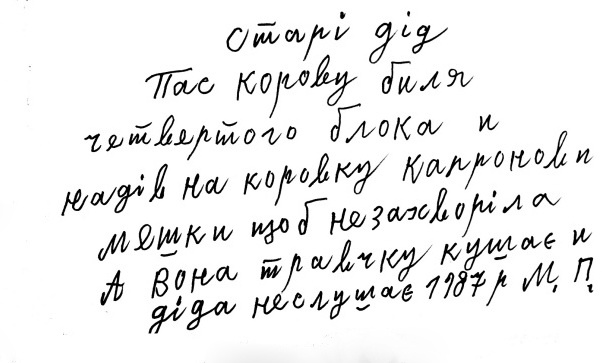 Старі дід
Пас корову биля
четвертого блока и
надів на коровку капронови
мешки щоб незахворіла
А вона травчку кушає и
діда неслушає 1987р М. П.